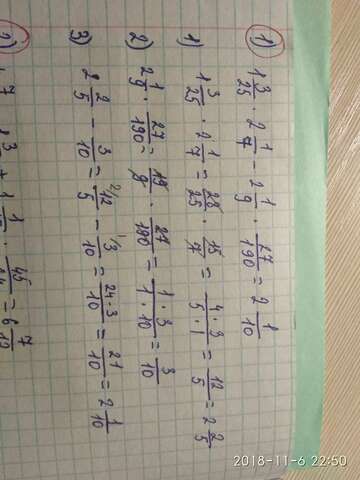 1)
1 3/25 · 2 1/7 - 2 1/9 · 27/190 = 2 1/10
1) 1 3/25 · 2 1/7 = 28/25 · 15/7 = 4·3/5·1 = 12/5 = 2 2/5
2) 2 1/9 · 27/190 = 19/9 · 27/190 = 1·3/1·10 = 3/10
3) 2 2/5 - 3/10 = 2/12/5 - 1/3/10 = 24·3/10 = 21/10 = 2 1/10
2)
45
= 6 7/12
2018-11-6 22:50